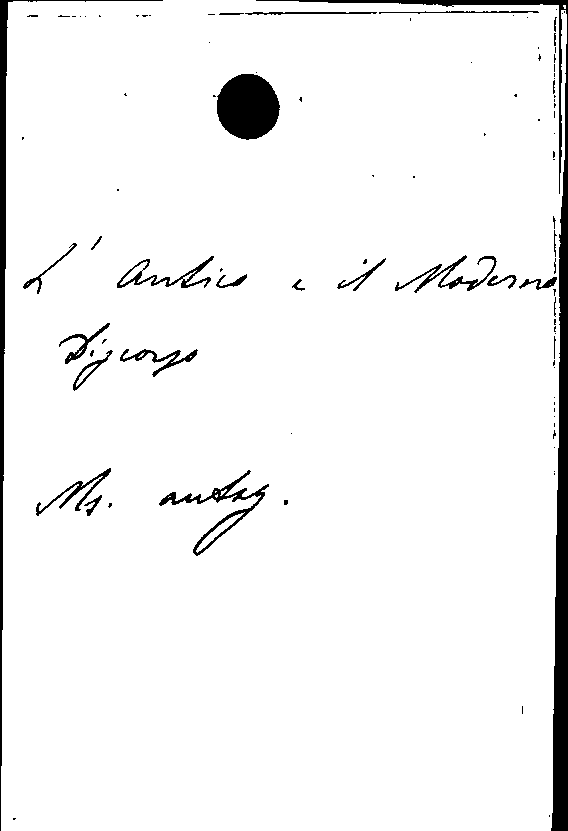 L' Antico e il Moderno
Discorso
Ms. autog.